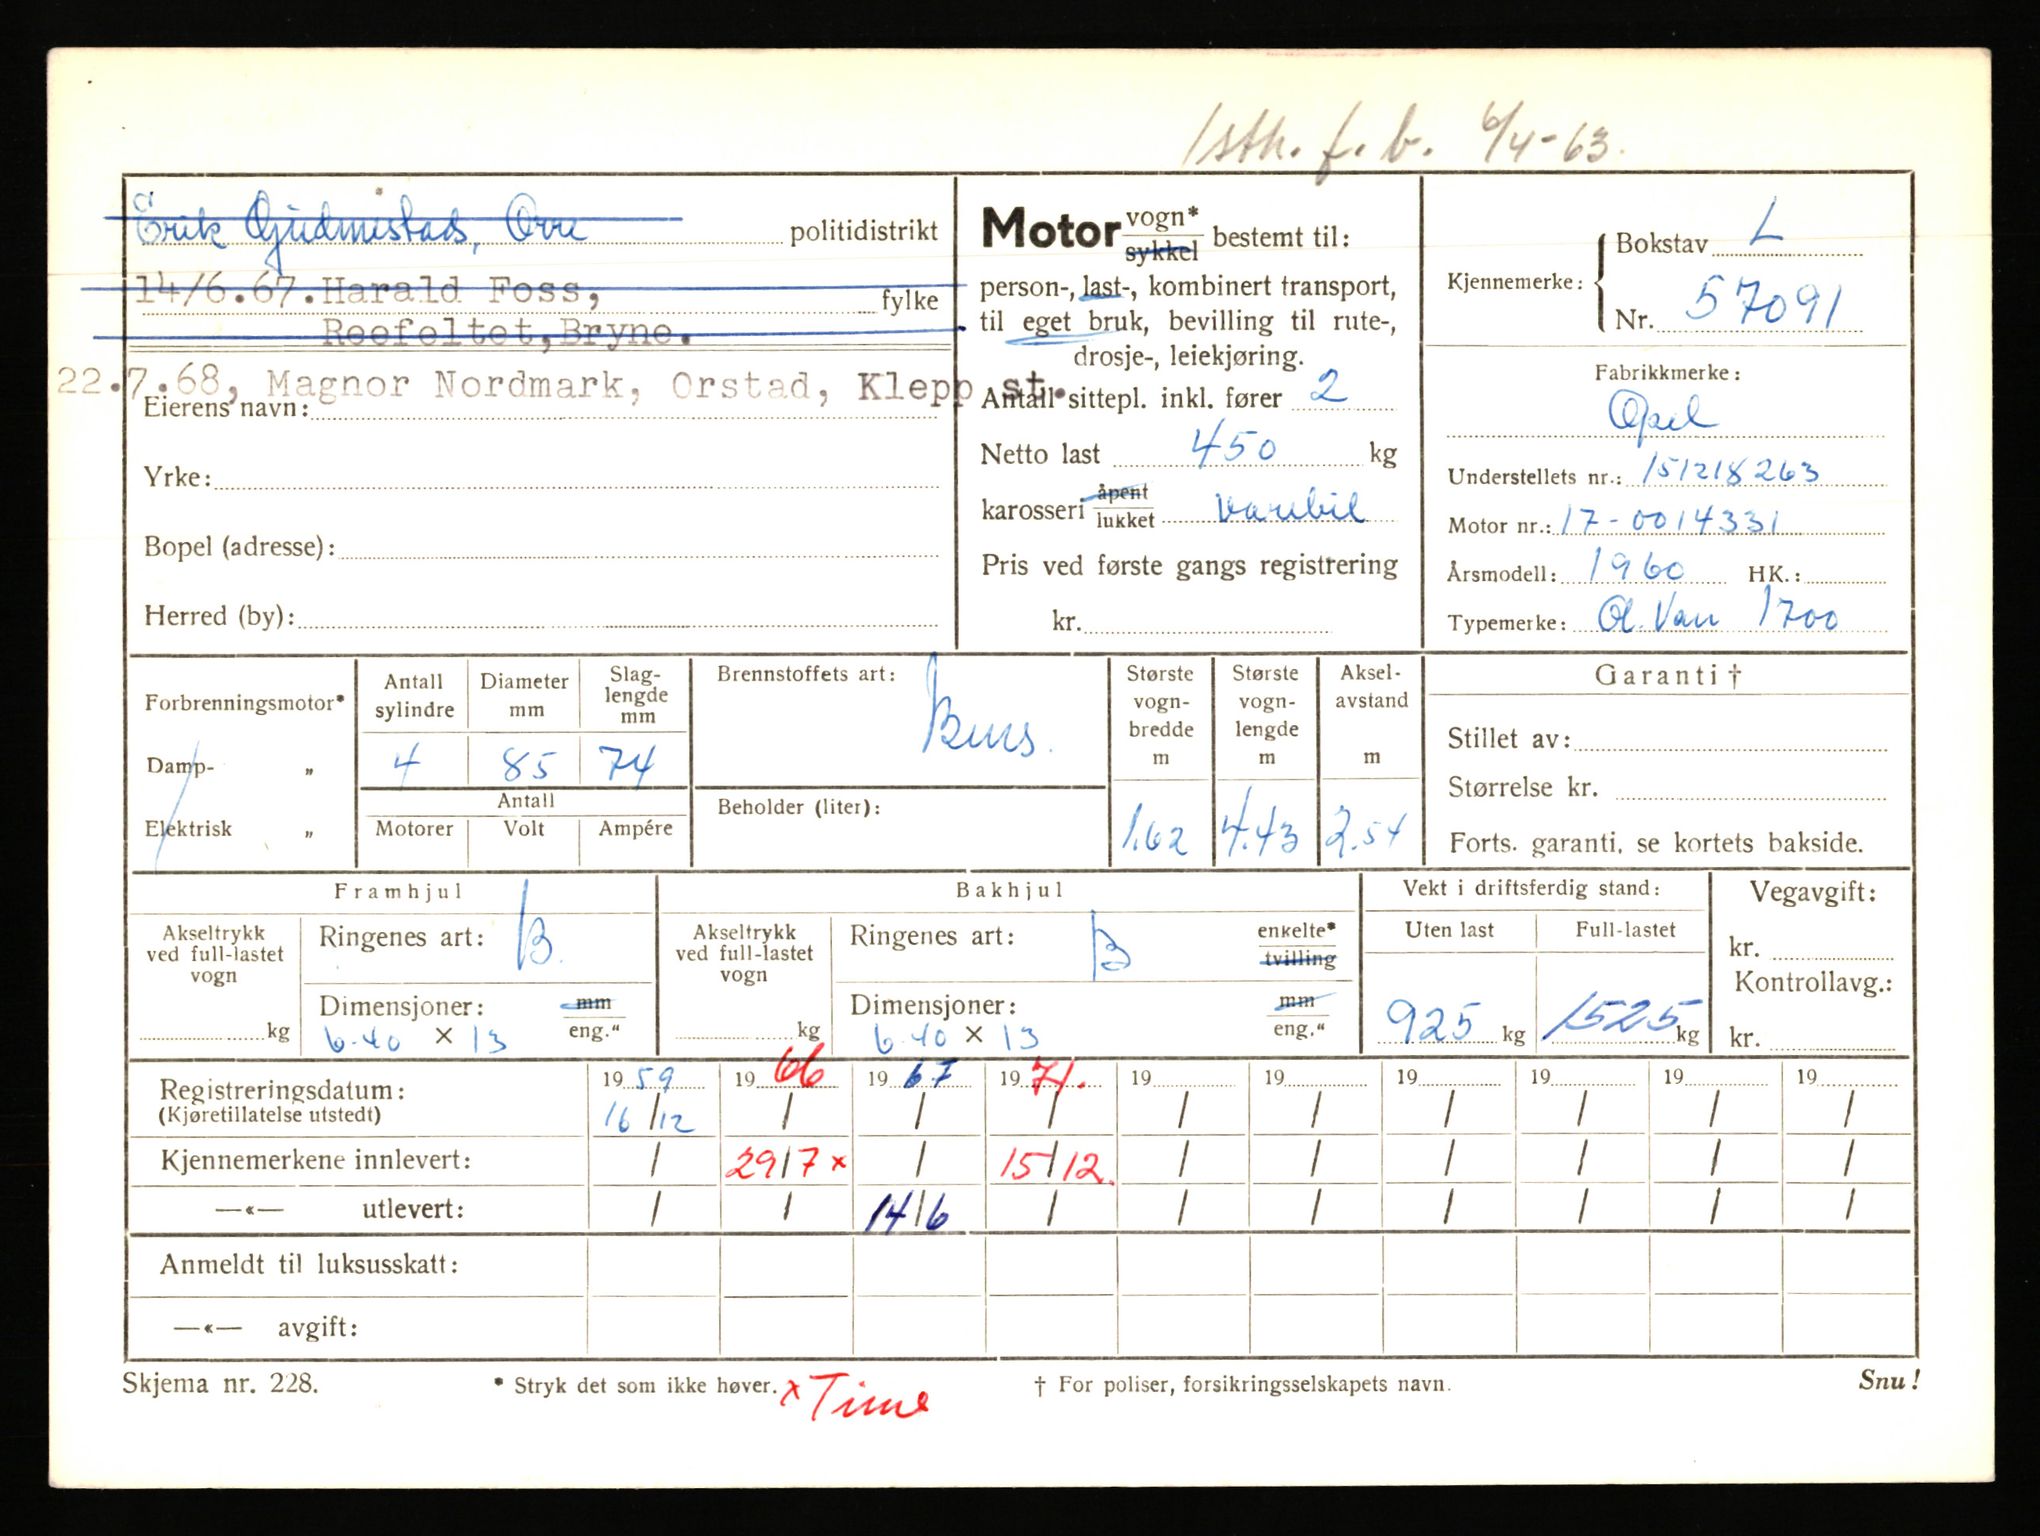 1 stk. f. b. 6/4-63.
Erik Gudmestads, Orre politidistrikt
14/6.67.Harald Foss, fylke
Reefeltet,Bryne.
22.7.68, Magnor Nordmark, Orstad, Klepp st.
Eierens navn:
Yrke:
Bopel (adresse):
Herred (by):
Motor vogn* sykkel bestemt til:
person-, last-, kombinert transport,
til eget bruk, bevilling til rute-,
drosje-, leiekjøring.
Antall sittepl. inkl. fører 2
Netto last 450 kg
karosseri åpent lukket varebil
Pris ved første gangs registrering
kr.
Kjennemerke: Bokstav L
Nr. 57091
Fabrikkmerke:
Opel
Understellets nr.: 151218263
Motor nr.: 17-0014331
Årsmodell: 1960 HK.:
Typemerke: Ol. Van 1700
Forbrenningsmotor*
Damp- „
Elektrisk „
Antall sylindre 4
Diameter mm 85
Slaglengde mm 74
Antall
Motorer Volt Ampére
Brennstoffets art: Bens.
Beholder (liter):
Største vognbredde m 1.62
Største vognlengde m 4.43
Akselavstand m 2.54
Garanti †
Stillet av:
Størrelse kr.
Forts. garanti, se kortets bakside.
Framhjul
Akseltrykk ved full-lastet vogn kg
Ringenes art: B.
Dimensjoner: mm
6.40 × 13 eng.“
Bakhjul
Akseltrykk ved full-lastet vogn kg
Ringenes art: B enkelte* tvilling
Dimensjoner: mm
6.40 × 13 eng.“
Vekt i driftsferdig stand:
Uten last Full-lastet
925 kg 1525 kg
Vegavgift:
kr.
Kontrollavg.:
kr.
Registreringsdatum: 19 59 19 66 19 67 19 71. 19 19 19 19 19 19
(Kjøretillatelse utstedt) 16/12 / / / / / / / / /
Kjennemerkene innlevert: / 29/7 x / 15/12. / / / / / /
—«— utlevert: / / 14/6 / / / / / / /
Anmeldt til luksusskatt:
—«— avgift:
Skjema nr. 228. * Stryk det som ikke høver. x Time † For poliser, forsikringsselskapets navn. Snu!